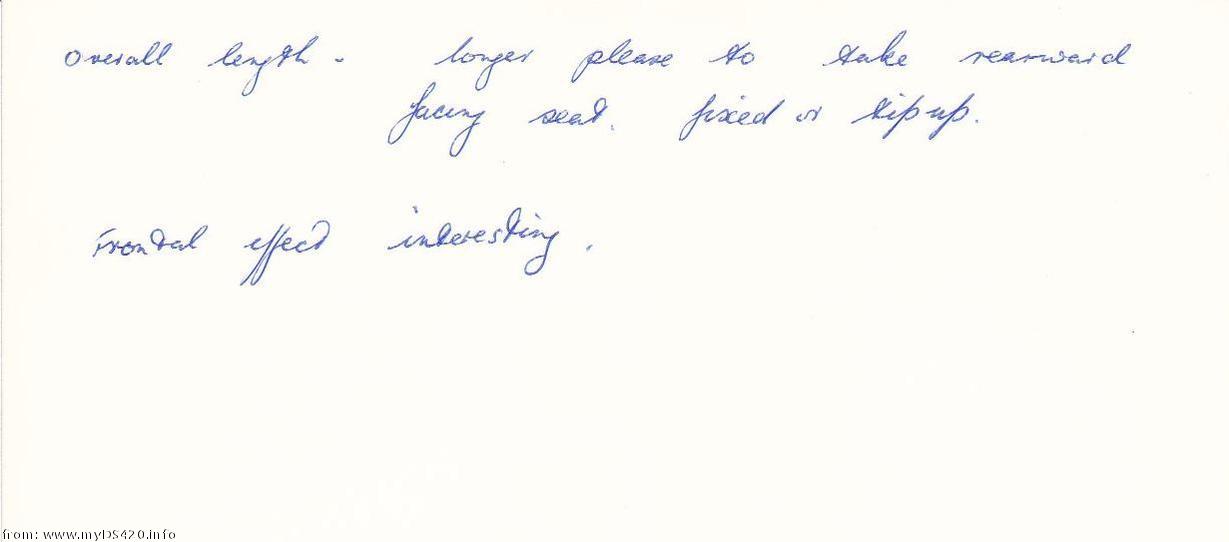 overall length - longer please to take rearward
facing seat. fixed or tip up.
Frontal effect interesting.
from: www.myDS420.info